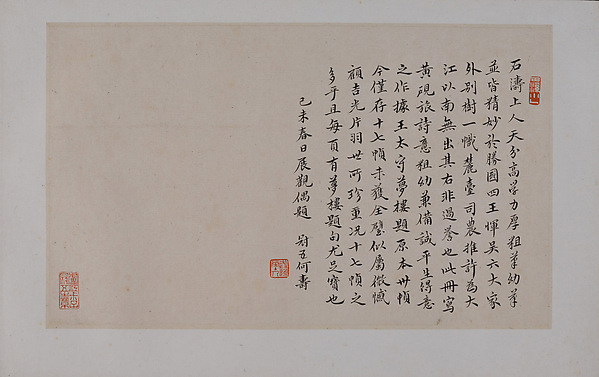 石濤上人天分高學力厚粗筆幼筆
並皆精妙於勝國四王惲吳六大家
外別樹一幟麓臺司農推許為大
江以南無出其右非過譽也此冊寫
黃硯旅詩意粗幼兼備誠平生得意
之作據王太守夢樓題原本卅幀
今僅存十七幀未獲全璧似屬微憾
顧吉光片羽世所珍重況十七幀之
多乎且每頁有夢樓題句尤足寶也
己未春日展觀偶題 冠五何壽